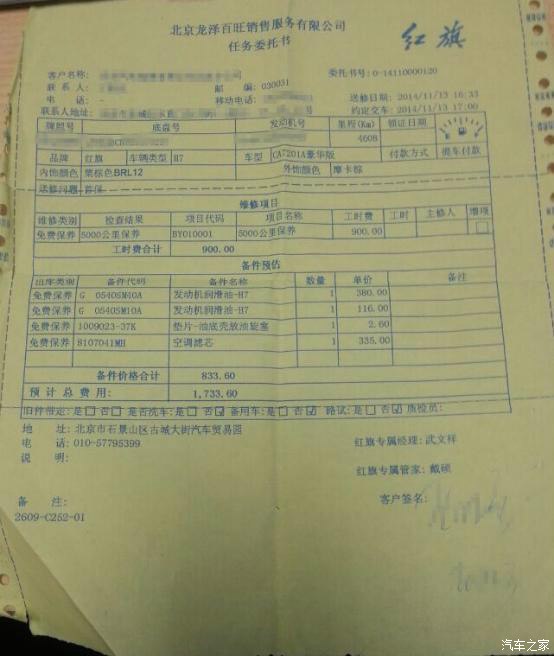 北京龙泽百旺销售服务有限公司
任务委托书
红旗
客户名称:
委托书号: 0-14110000120
联系人:
邮编: 030031
送修日期: 2014/11/13 16:33
电话: -
移动电话:
约定交车: 2014/11/13 17:00
联系人地址:
牌照号 底盘号 发动机号 里程(Km) 领证日期
4608
品牌 红旗 车辆类型 H7 车型 CA7201A豪华版 付款方式 提车付款
内饰颜色 栗棕色BRL12 外饰颜色 摩卡棕
送修问题 首保
维修项目
维修类别 检查结果 项目代码 项目名称 工时费 工时 主修人 增项
免费保养 5000公里保养 BY010001 5000公里保养 900.00
工时费合计 900.00
备件预估
出库类别 备件代码 备件名称 数量 单价 备注
免费保养 G 0540SM40A 发动机润滑油-H7 1 380.00
免费保养 G 0540SM10A 发动机润滑油-H7 1 116.00
免费保养 1009023-37K 垫片-油底壳放油旋塞 1 2.60
免费保养 8107041MH 空调滤芯 1 335.00
备件价格合计 833.60
预计总费用: 1,733.60
旧件带走: 是 否 是否洗车: 是 否 备用车: 是 否 路试: 是 否 质检员:
地址: 北京市石景山区古城大街汽车贸易园
电话: 010-57795399
说明:
红旗专属经理: 武文祥
红旗专属管家: 戴硕
客户签名:
备注:
2609-C252-01
汽车之家